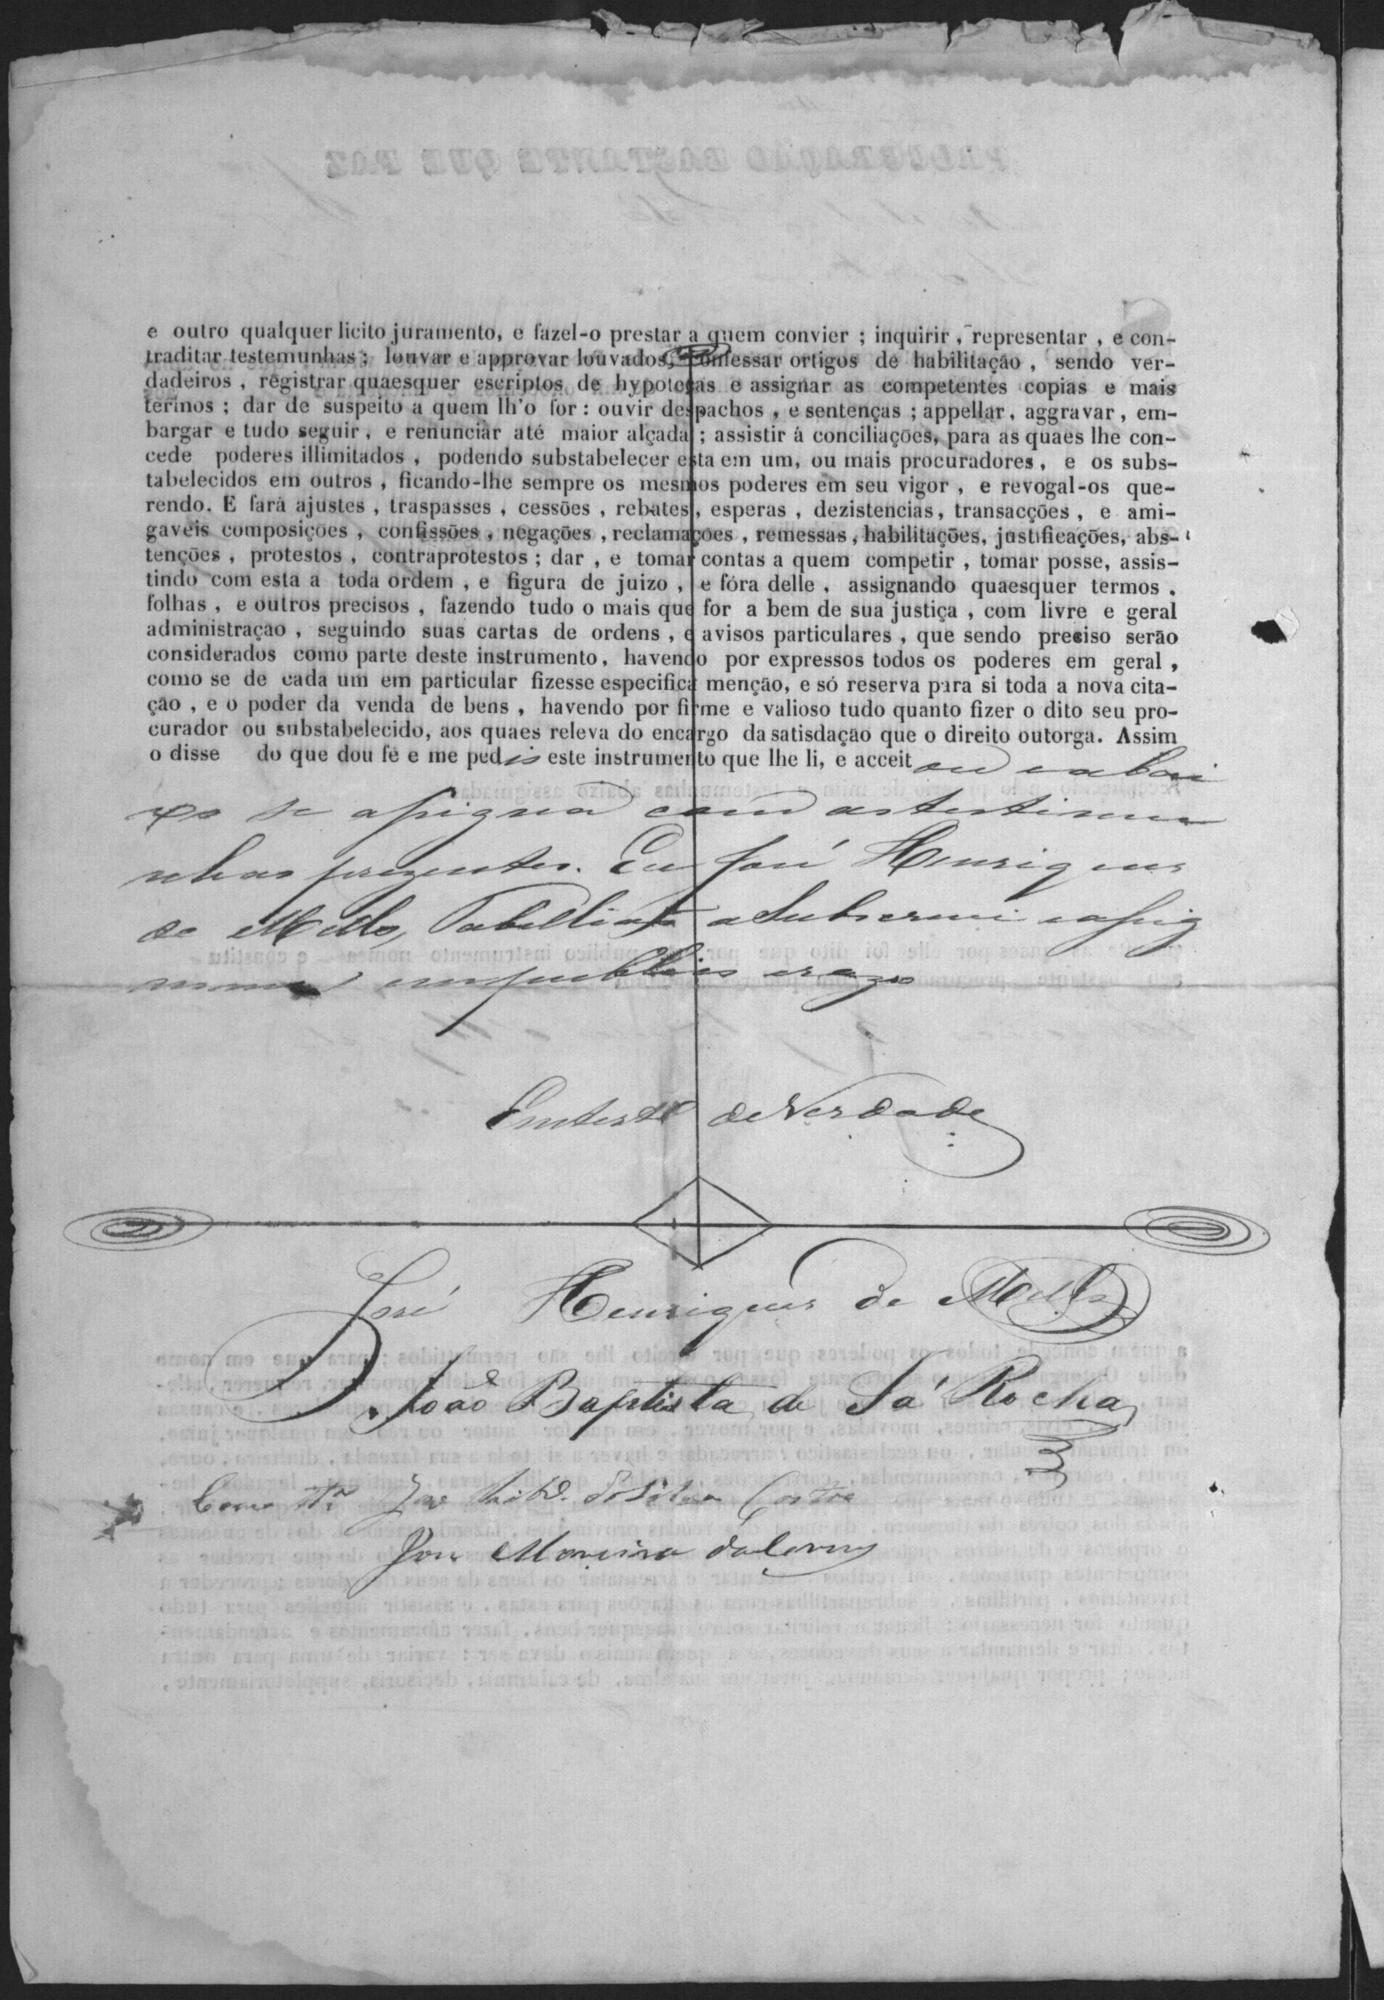 e outro qualquer licito juramento, e fazel-o prestar a quem convier ; inquirir , representar , e con-
traditar testemunhas ; louvar e approvar louvados, confessar ortigos de habilitação , sendo ver-
dadeiros , registrar quaesquer escriptos de hypotecas e assignar as competentes copias e mais
termos ; dar de suspeito a quem lh'o for : ouvir despachos , e sentenças ; appellar , aggravar , em-
bargar e tudo seguir , e renunciar até maior alçada ; assistir á conciliações, para as quaes lhe con-
cede poderes illimitados , podendo substabelecer esta em um, ou mais procuradores, e os subs-
tabelecidos em outros , ficando-lhe sempre os mesmos poderes em seu vigor , e revogal-os que-
rendo. E fará ajustes , traspasses , cessões , rebates , esperas , dezistencias, transacções , e ami-
gaveis composições , confissões , negações , reclamações , remessas , habilitações, justificações, abs-
tenções , protestos , contraprotestos ; dar , e tomar contas a quem competir , tomar posse, assis-
tindo com esta a toda ordem , e figura de juizo , e fóra delle , assignando quaesquer termos .
folhas , e outros precisos , fazendo tudo o mais que for a bem de sua justiça , com livre e geral
administração , seguindo suas cartas de ordens , e avisos particulares , que sendo preciso serão
considerados como parte deste instrumento, havendo por expressos todos os poderes em geral ,
como se de cada um em particular fizesse especifica menção, e só reserva para si toda a nova cita-
ção , e o poder da venda de bens , havendo por firme e valioso tudo quanto fizer o dito seu pro-
curador ou substabelecido, aos quaes releva do encargo da satisdação que o direito outorga. Assim
o disse do que dou fé e me pedio este instrumento que lhe li, e acceitou e abai
xo se assigna com as testimu
nhas prezentes. Eu José Henriques
de Mello, Tabellião a Subscrevi e assig
no em publico e razo
Em testº de Verdade
José Henriques de Mello
João Baptista de Sá Rocha
Como Tª José da Silva Costa
José Moreira da